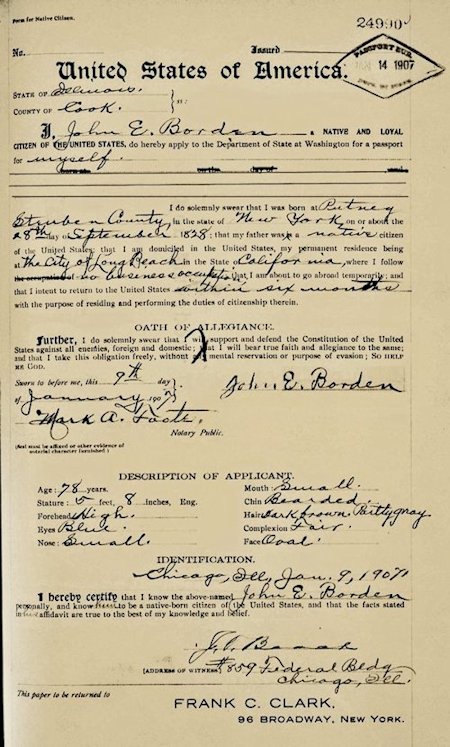 Form for Native Citizen.
24990
No.
Issued
PASSPORT BUR.
JAN 14 1907
United States of America.
STATE OF Illinois.
COUNTY OF Cook.
ss:
I, John E. Borden, A NATIVE AND LOYAL
CITIZEN OF THE UNITED STATES, do hereby apply to the Department of State at Washington for a passport
for myself.
I do solemnly swear that I was born at Putney
Steuben County, in the state of New York, on or about the
28th day of September 1828; that my father was a native citizen
of the United States; that I am domiciled in the United States, my permanent residence being
at the City of Long Beach in the State of California, where I follow
the occupation of no business occupation that I am about to go abroad temporarily; and
that I intend to return to the United States within six months
with the purpose of residing and performing the duties of citizenship therein.
OATH OF ALLEGIANCE.
Further, I do solemnly swear that I will support and defend the Constitution of the United
States against all enemies, foreign and domestic; that I will bear true faith and allegiance to the same;
and that I take this obligation freely, without any mental reservation or purpose of evasion; SO HELP
ME GOD.
Sworn to before me, this 9th day
of January 1907
John E. Borden
Mark A. Foote.
Notary Public.
(Seal must be affixed or other evidence of
notarial character furnished)
DESCRIPTION OF APPLICANT.
Age: 78 years.
Mouth: Small.
Stature: 5 feet, 8 inches, Eng.
Chin Bearded.
Forehead High.
Hair Dark brown Partly gray
Eyes Blue.
Complexion Fair.
Nose: Small.
Face Oval.
IDENTIFICATION.
Chicago, Ill, Jan. 9, 1907
I hereby certify that I know the above-named John E. Borden
personally, and know him to be a native-born citizen of the United States, and that the facts stated
in his affidavit are true to the best of my knowledge and belief.
[ADDRESS OF WITNESS] #859 Federal Bldg
Chicago, Ill.
This paper to be returned to
FRANK C. CLARK,
96 BROADWAY, NEW YORK.